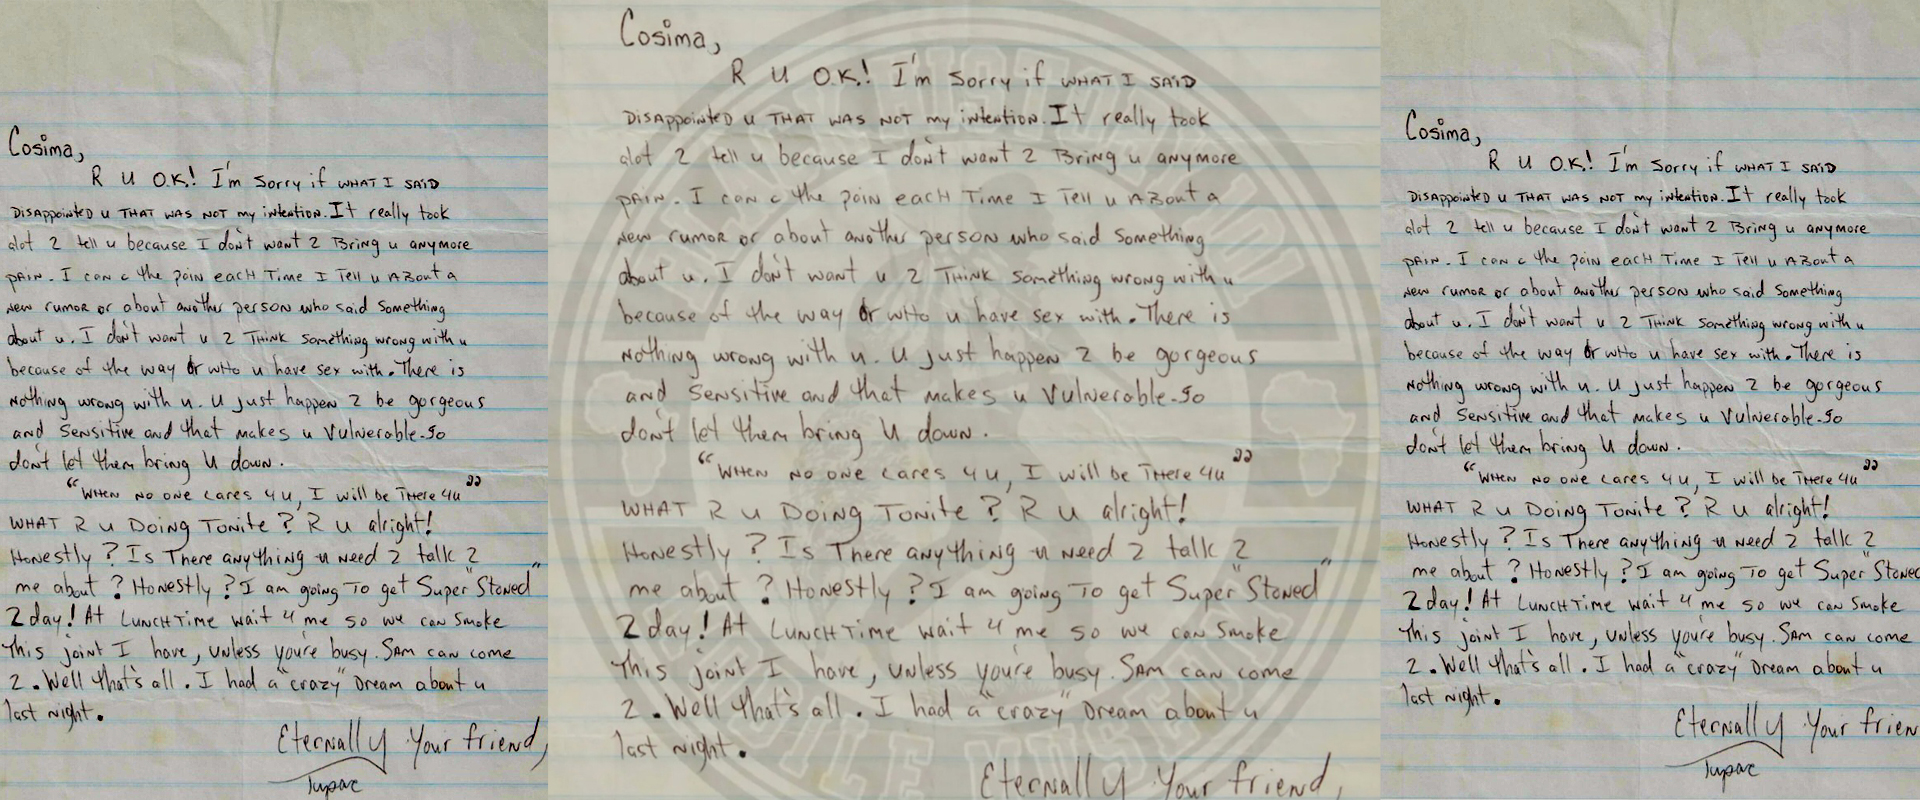 Cosima,
R U O.K.! I'm Sorry if WHAT I SAID
DISAppointeD u THAT WAS NOT my intention. It really took
alot 2 tell u because I don't want 2 Bring u anymore
pAiN. I can c the pain eacH Time I Tell u ABout a
New rumor or about another person who said Something
about u. I don't want u 2 THiNK something wrong with u
because of the way or wHo u have sex with. There is
Nothing wrong with u. U just happen 2 be gorgeous
and Sensitive and that makes u Vulnerable. So
don't let them bring U down.
"WHEN NO ONE cares 4 u, I will be THere 4u"
WHAT R u Doing Tonite? R U alright!
Honestly? Is There anything u Need 2 talk 2
me about? Honestly? I am going To get Super "Stoned"
2day! At LUNCHTime wait 4 me so we can Smoke
this joint I have, UNless you're busy. SAM can come
2. Well that's all. I had a "crazy" Dream about u
last night.
Eternally Your friend,
Tupac
Cosima,
R U O.K.! I'm Sorry if WHAT I SAID
DISAppointeD u THAT WAS NOT my intention. It really took
alot 2 tell u because I don't want 2 Bring u anymore
pAiN. I can c the pain eacH Time I Tell u ABout a
New rumor or about another person who said Something
about u. I don't want u 2 THiNK something wrong with u
because of the way or wHo u have sex with. There is
Nothing wrong with u. U just happen 2 be gorgeous
and Sensitive and that makes u Vulnerable. So
don't let them bring U down.
"WHEN NO ONE cares 4 u, I will be THere 4u"
WHAT R u Doing Tonite? R U alright!
Honestly? Is There anything u Need 2 talk 2
me about? Honestly? I am going To get Super "Stoned"
2day! At LUNCHTime wait 4 me so we can Smoke
this joint I have, UNless you're busy. SAM can come
2. Well that's all. I had a "crazy" Dream about u
last night.
Eternally Your friend,
Cosima,
R U O.K.! I'm Sorry if WHAT I SAID
DISAppointeD u THAT WAS NOT my intention. It really took
alot 2 tell u because I don't want 2 Bring u anymore
pAiN. I can c the pain eacH Time I Tell u ABout a
New rumor or about another person who said Something
about u. I don't want u 2 THiNK something wrong with u
because of the way or wHo u have sex with. There is
Nothing wrong with u. U just happen 2 be gorgeous
and Sensitive and that makes u Vulnerable. So
don't let them bring U down.
"WHEN NO ONE cares 4 u, I will be THere 4u"
WHAT R u Doing Tonite? R U alright!
Honestly? Is There anything u Need 2 talk 2
me about? Honestly? I am going To get Super "Stoned
2day! At LUNCHTime wait 4 me so we can Smoke
this joint I have, UNless you're busy. SAM can come
2. Well that's all. I had a "crazy" Dream about u
last night.
Eternally Your frien
Tupac